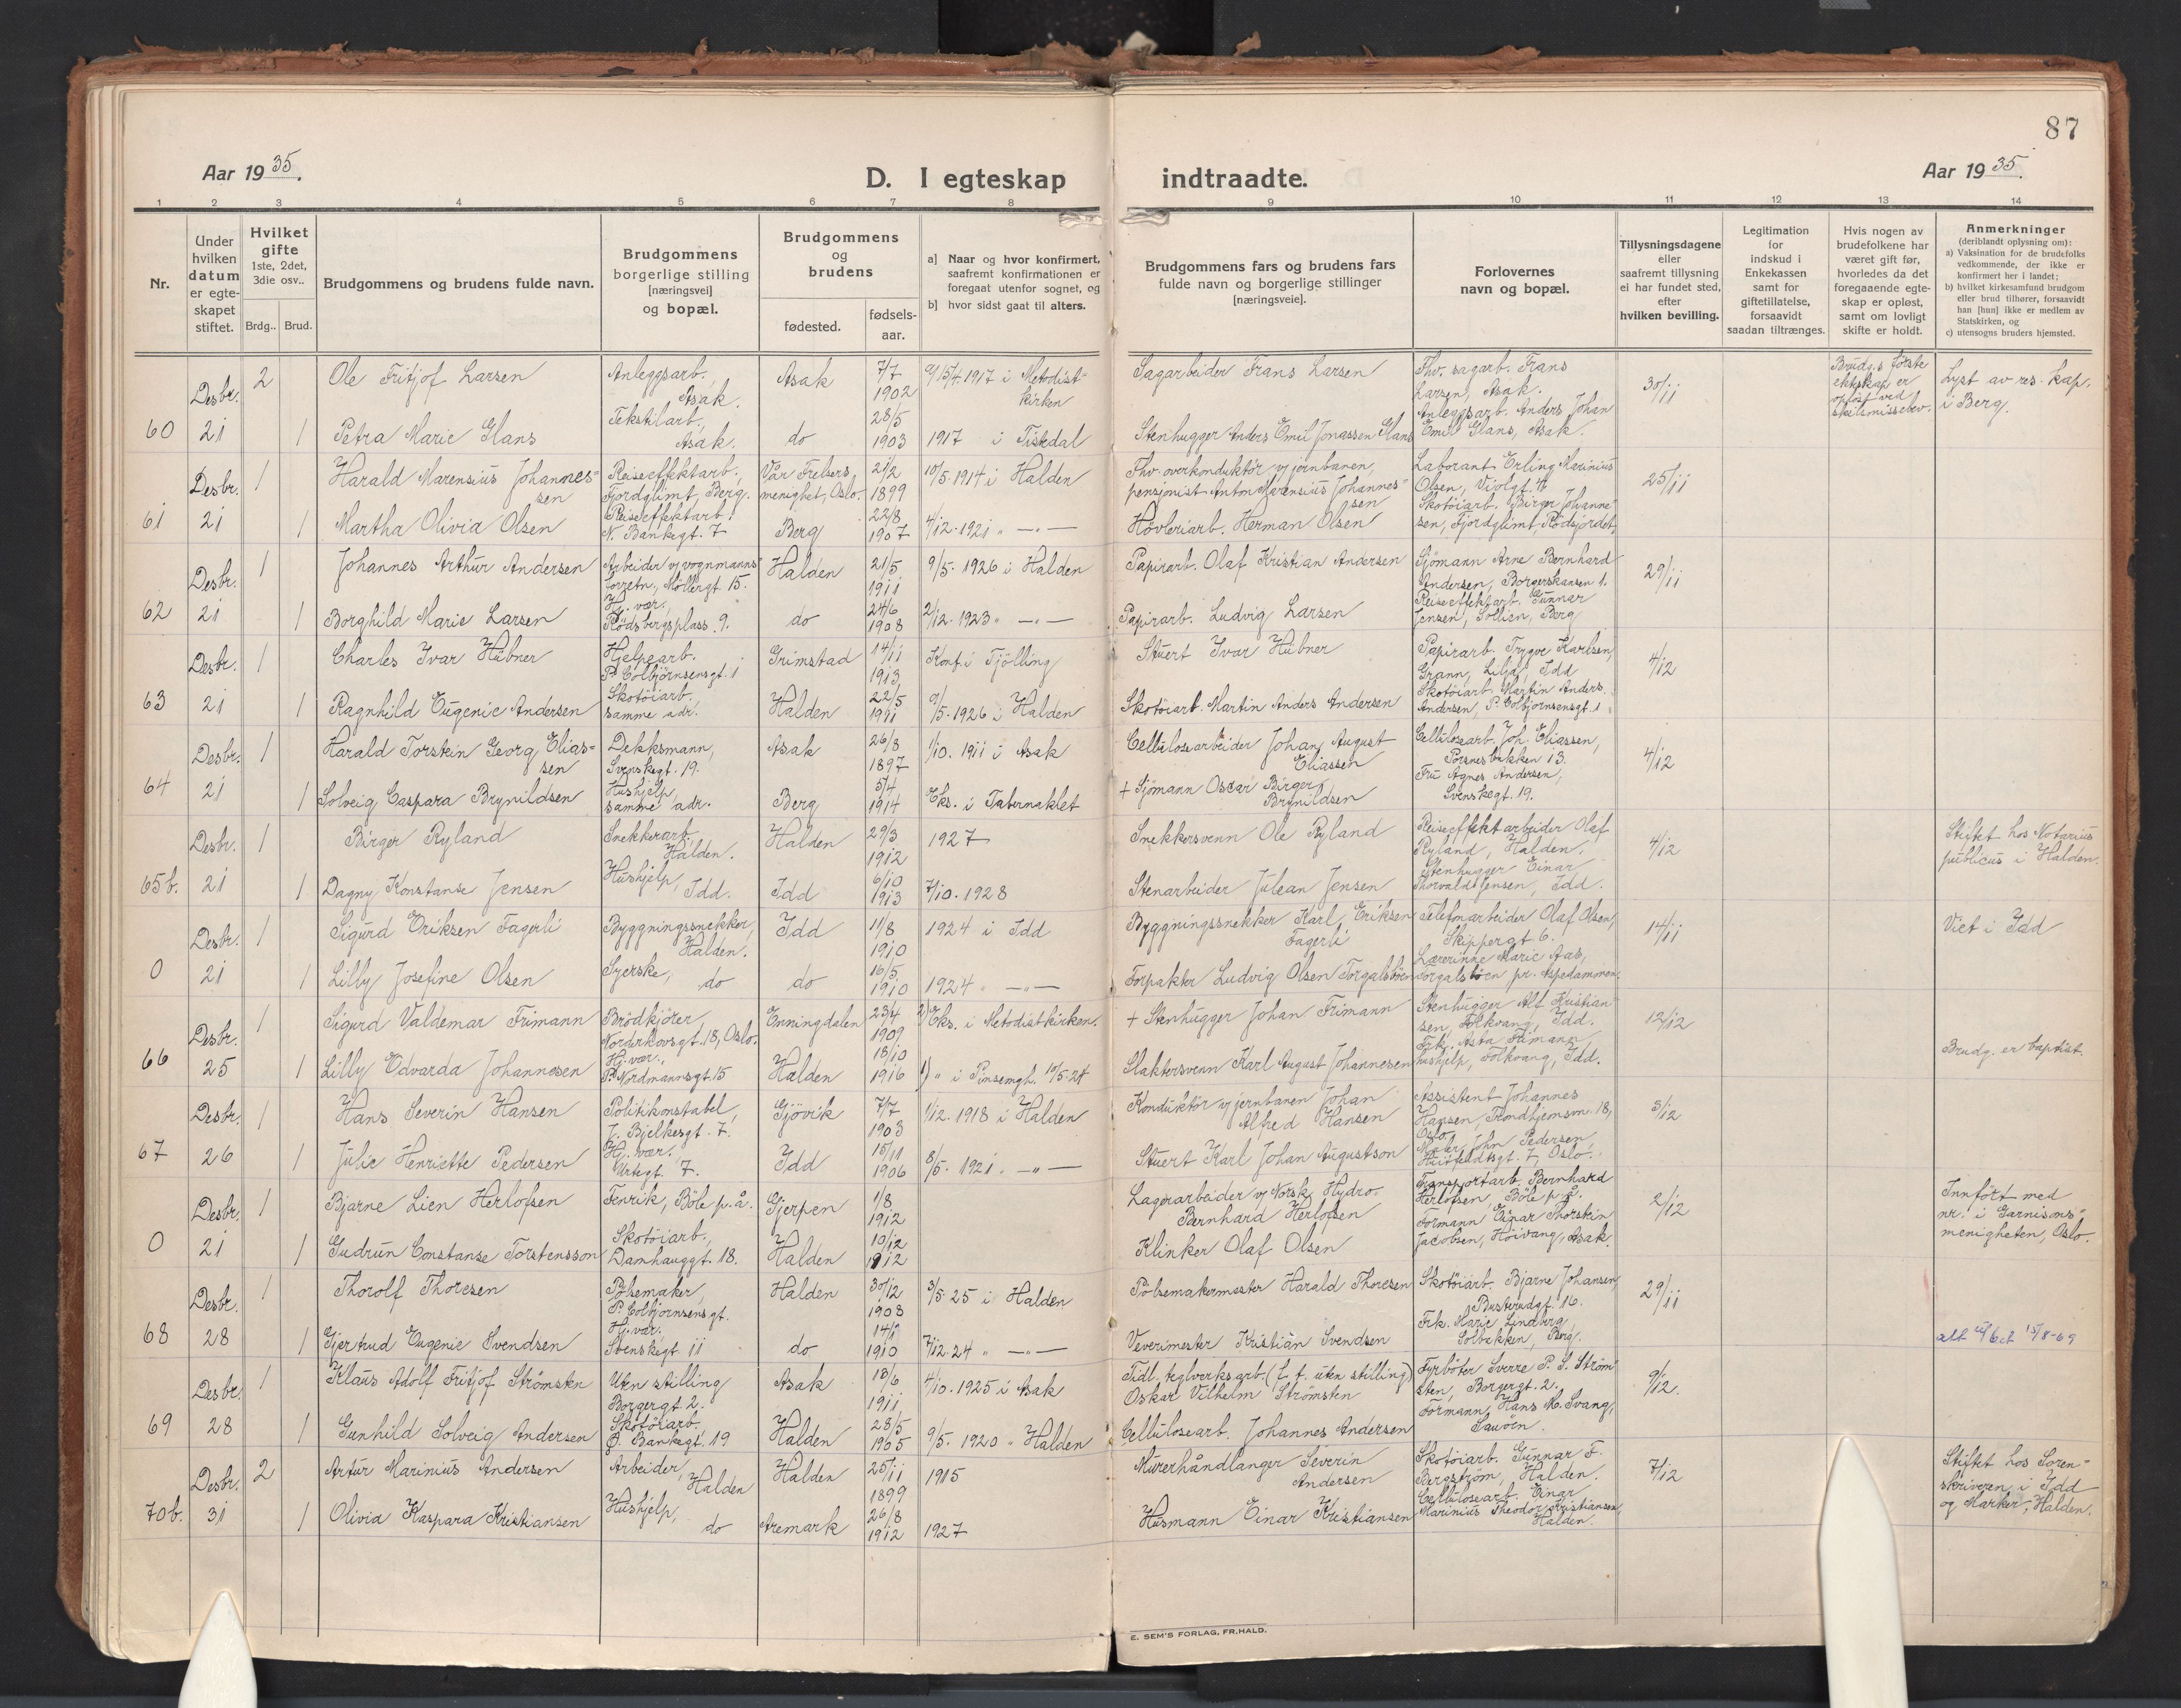 87
Aar 1935.
D. I egteskap indtraadte.
Aar 1935.
1 2 3 4 5 6 7 8 9 10 11 12 13 14
Nr.
Under hvilken datum er egteskapet stiftet.
Hvilket gifte 1ste, 2det, 3die osv..
Brdg.. Brud.
Brudgommens og brudens fulde navn.
Brudgommens borgerlige stilling [næringsvei] og bopæl.
Brudgommens og brudens
fødested.
fødselsaar.
a] Naar og hvor konfirmert, saafremt konfirmationen er foregaat utenfor sognet, og
b] hvor sidst gaat til alters.
Brudgommens fars og brudens fars fulde navn og borgerlige stillinger [næringsveie].
Forlovernes navn og bopæl.
Tillysningsdagene eller saafremt tillysning ei har fundet sted, efter hvilken bevilling.
Legitimation for indskud i Enkekassen samt for giftetillatelse, forsaavidt saadan tiltrænges.
Hvis nogen av brudefolkene har været gift før, hvorledes da det foregaaende egteskap er opløst, samt om lovligt skifte er holdt.
Anmerkninger (deriblandt oplysning om):
a) Vaksination for de brudefolks vedkommende, der ikke er konfirmert her i landet;
b) hvilket kirkesamfund brudgom eller brud tilhører, forsaavidt han [hun] ikke er medlem av Statskirken, og
c) utensogns bruders hjemsted.
Desbr. 2 Ole Fritjof Larsen Anleggsarb., Asak. Asak 7/7 1902 15/4 1917 i Metodistkirken Sagarbeider Frans Larsen Fhv. sagarb. Frans Larsen, Asak. 30/11 Brudg.s første ekteskap er opløst ved skilsmissebev. Lyst av res. kap. i Berg.
60 21 1 Petra Marie Glans Tekstilarb., Asak. do 28/5 1903 1917 i Tistedal Stenhugger Anders Emil Jonassen Glans Anleggsarb. Anders Johan Emil Glans, Asak.
Desbr. 1 Harald Marensius Johannessen Reiseeffektarb., Fjordglimt, Berg. Vår Frelsers menighet, Oslo. 21/2 1899 10/5. 1914 i Halden Fhv. overkonduktör v/ jernbanen, pensjonist Anton Marensius Johannessen Laborant Erling Marinius Olsen, Violgt. 4 25/11
61 21 1 Martha Olivia Olsen Reiseeffektarb. N. Bankegt. 7 Berg 22/8 1907 4/12. 1921 " —"— Hövleriarb. Herman Olsen Skotöiarb. Birger Johannessen, Fjordglimt, Rödsfjordet.
Desbr. 1 Johannes Arthur Andersen Arbeider v/ vognmannsforretn., Möllergt. 15. Halden 21/5 1911 9/5. 1926 i Halden Papirarb. Olaf Kristian Andersen Sjömann Arne Bernhard Andersen, Borgerskansen 1. 29/11
62 21 1 Borghild Marie Larsen Hj. vær., Rödsbergsplass 9. do 24/6 1908 2/12. 1923 " —"— Papirarb. Ludvig Larsen Reiseeffektarb. Gunnar Jensen, Sollien, Berg
Desbr. 1 Charles Ivar Hübner Hjelpearb. P. Colbjörnsensgt. 1 Grimstad 14/11 1913 Konf. i Tjölling Stuert Ivar Hübner Papirarb. Trygve Karlsen, Grann, Lilja, Idd 4/12
63 21 1 Ragnhild Eugenie Andersen Skotöiarb., samme adr. Halden 22/5 1911 9/5. 1926 i Halden Skotöiarb. Martin Anders Andersen Skotöiarb. Martin Anders Andersen, P. Colbjörnsensgt. 1
Desbr. 1 Harald Torstein Georg Eliassen Dekksmann, Svenskegt. 19. Asak 26/8 1897 1/10. 1911 i Asak Cellulosearbeider Johan August Eliassen Cellulosearb. Joh. Eliassen, Porsnesbakken 13. 4/12
64 21 1 Solveig Caspara Brynildsen Hushjelp, samme adr. Berg 5/4 1914 Eks. i Tabernaklet + Sjömann Oscar Birger Brynildsen Fru Agnes Andersen, Svenskegt. 19.
Desbr. 1 Birger Ryland Snekkerarb., Halden. Halden 29/3 1912 1927 Snekkersvenn Ole Ryland Reiseeffektarbeider Olaf Ryland, Halden. 4/12 Stiftet hos Notarius publicus i Halden.
65b. 21 1 Dagny Konstanse Jensen Hushjelp, Idd. Idd 6/10 1913 7/10. 1928 Stenarbeider Julean Jensen Stenhugger Einar Thorvald Jensen, Idd.
Desbr. 1 Sigurd Eriksen Fagerli Byggningssnekker, Halden. Idd 11/8 1910 1924 i Idd Byggningssnekker Karl Eriksen Fagerli Telefonarbeider Olaf Olsen, Skippergt 6. 14/11 Viet i Idd
0 21 1 Lilly Josefine Olsen Syerske, do do 16/5 1910 1924 " —"— Forpakter Ludvig Olsen Torgalsböen Lærerinne Marie Aas, Torgalsböen pr. Aspedammen.
Desbr. 1 Sigurd Valdemar Frimann Brödkjörer, Norderhovsgt. 18, Oslo. Enningdalen 23/4 1909 2) Eks. i Metodistkirken. + Stenhugger Johan Frimann Stenhugger Alf Kristiansen, Folkvang, Idd. 12/12
66 25 1 Lilly Edvarda Johannesen Hj. vær., P. Nordmannsgt. 15 Halden 18/10 1916 1) " i Pinsemgh. 10/5-24 Slaktersvenn Karl August Johannesen Frk. Asta Frimann, hushjelp, Folkvang, Idd. Brudg. er baptist.
Desbr. 1 Hans Severin Hansen Politikonstabel, J. Bjelkesgt. 7. Gjövik 7/7 1903 1/12. 1918 i Halden Konduktör v/ jernbanen Johan Alfred Hansen Assistent Johannes Hansen, Trondhjemsvn. 18, Oslo. 5/12
67 26 1 Julie Henriette Pedersen Hj. vær. Urtegt. 7. Idd 15/11 1906 8/5. 1921 " —"— Stuert Karl Johan Augustson Maler John Pedersen, Huitfeldtsgt. 7, Oslo.
Desbr. 1 Bjarne Lien Herlofsen Fenrik, Böle p. å. Gjerpen 1/8 1912 Lagerarbeider v/ Norsk Hydro Bernhard Herlofsen Transportarb. Bernhard Herlofsen, Böle p. å. 2/12 Innfört med nr. i Garnisonsmenigheten, Oslo.
0 21 1 Gudrun Constanse Torstensson Skotöiarb., Damhauggt. 18. Halden 10/12 1912 Klinker Olaf Olsen Formann Einar Thorstein Jacobsen, Höivang, Asak.
Desbr. 1 Thorolf Thoresen Pölsemaker, P. Colbjörnsensgt. Halden 30/12 1908 3/5. 25 i Halden Pölsemakermester Harald Thoresen Skotöiarb. Bjarne Johansen, Busterudgt. 16. 29/11
68 28 1 Gjertrud Eugenie Svendsen Hj. vær. Svenskegt 11 do 14/1 1910 7/12. 24 " —"— Veverimester Kristian Svendsen Frk. Marie Lindberg, Solbakken, Berg. 15/8-69
Desbr. 1 Klaus Adolf Fritjof Strömsten Uten stilling Borgergt 2. Asak 18/6 1911 4/10. 1925 i Asak Tidl. teglverksarb. (f. t. uten stilling) Oskar Vilhelm Strömsten Fyrböter Sverre P. S. Strömsten, Borgergt. 2. 9/12.
69 28 1 Gunhild Solveig Andersen Skotöiarb., Ø. Bankegt. 19 Halden 28/5 1905 9/5. 1920 " Halden Cellulosearb. Johannes Andersen Formann Hans M. Svang, Sauöen.
Desbr. 2 Artur Marinius Andersen Arbeider, Halden Halden 25/11 1899 1915 Murerhåndlanger Severin Andersen Skotöiarb. Gunnar F. Bergström, Halden. 7/12 Stiftet hos Sorenskriveren i Idd og Marker, Halden.
70b. 31 1 Olivia Kaspara Kristiansen Hushjelp, do Aremark 26/8 1912 1927 Husmann Einar Kristiansen Cellulosearb. Einar Marinius Theodor Kristiansen, Halden.
E. SEM'S FORLAG, FR.HALD.